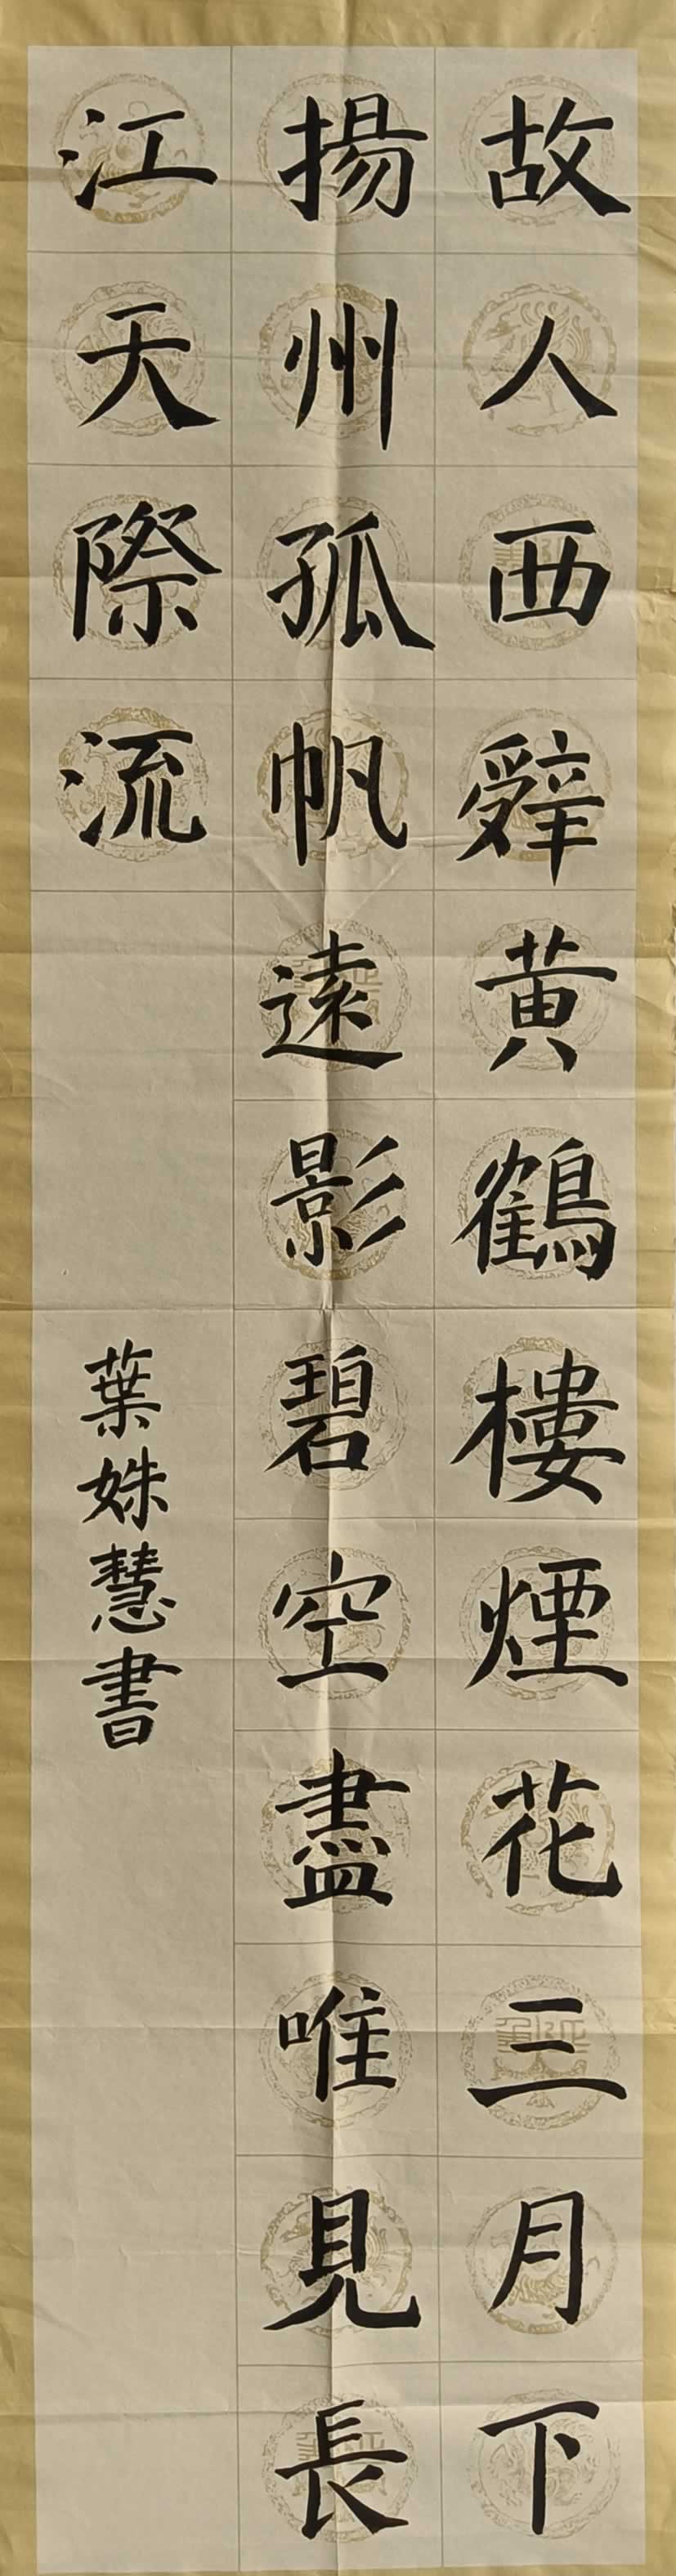 故人西辭黃鶴樓煙花三月下
揚州孤帆遠影碧空盡唯見長
江天際流
葉姝慧書